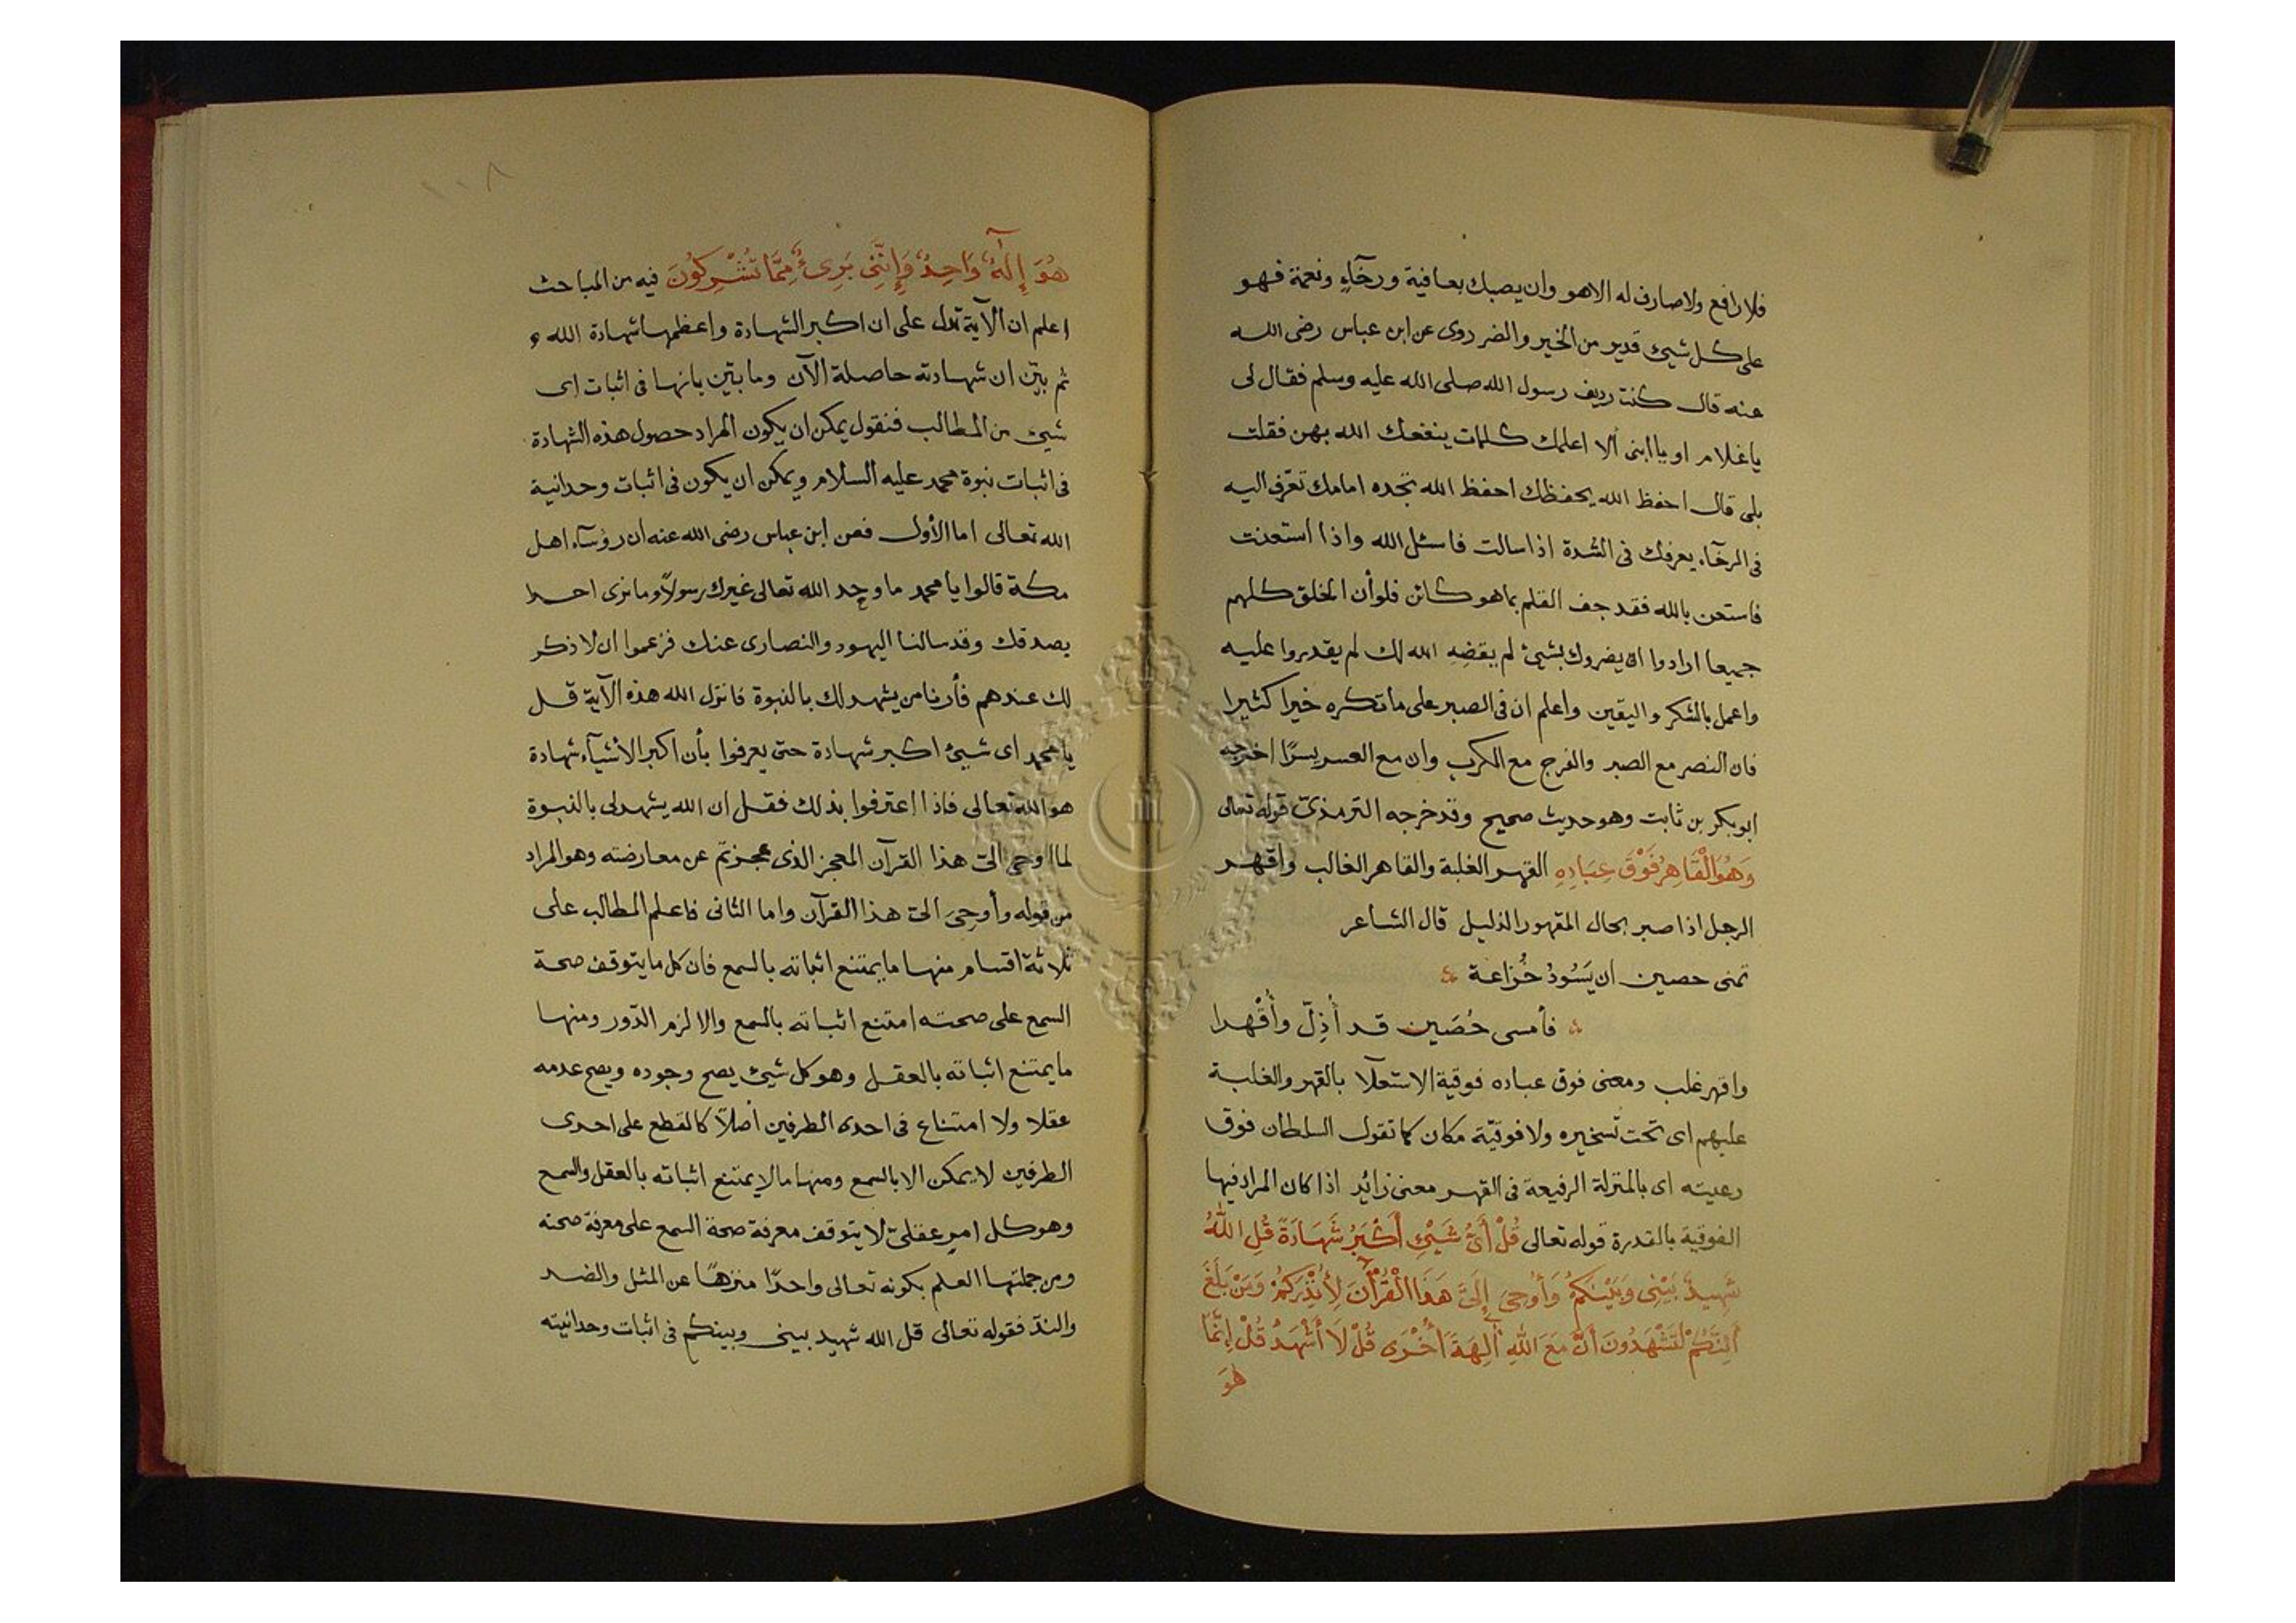 فلا رافع ولا صارف له الا هو وان يصبك بعافية ورخآءٍ ونعمة فهو
على كل شيئ قدير من الخير والضر روى عن ابن عباس رضى الله
عنه قال كنت رديف رسول الله صلى الله عليه وسلم فقال لى
يا غلام او يا ابنى ألا اعلمك كلمات ينفعك الله بهن فقلت
بلى قال احفظ الله يحفظك احفظ الله تجده امامك تعرّف اليه
فى الرخآء يعرفك فى الشدة اذا سالت فاسئل الله واذا استعنت
فاستعن بالله فقد جف القلم بما هو كائن فلو أن الخلق كلهم
جميعا ارادوا ان يضروك بشيئ لم يقضِهِ الله لك لم يقدروا عليه
واعمل بالشكر واليقين واعلم ان فى الصبر على ما تكره خيرا كثيرا
فان النصر مع الصبر والفرج مع الكرب وان مع العسر يسرًا اخرجه
ابو بكر بن ثابت وهو حديث صحيح وقد خرجه الترمذىّ قوله تعالى
وَهُوَ الْقَاهِرُ فَوْقَ عِبَادِهِ القهر الغلبة والقاهر الغالب واقهر
الرجل اذا صبر بحال المقهور الذليل قال الشاعر
تمنى حصين ان يَسُودُ خُزاعة
فأمسى حُصَين قد أُذِلّ وأُقْهرا
واقهر غلب ومعنى فوق عباده فوقية الاستعلآ بالقهر والغلبة
عليهم اى تحت تسخيره ولا فوقيّة مكان كما تقول السلطان فوق
رعيته اى بالمنزلة الرفيعة فى القهر معنى زائد اذا كان المراد فيها
الفوقية بالقدرة قوله تعالى قُلْ أَىُّ شَيْئٍ أَكْبَرُ شَهَادَةً قُلِ اللهُ
شَهِيدٌ بَيْنِى وَبَيْنَكُمْ وَأُوحِىَ إِلَىَّ هَذَا الْقُرْآنَ لِأُنْذِرَكُمْ وَمَنْ بَلَغَ
أَئِنَّكُمْ لَتَشْهَدُونَ أَنَّ مَعَ اللهِ آلِهَةً أُخْرَى قُلْ لَا أَشْهَدُ قُلْ إِنَّمَا
هُوَ
١٠٨
هُوَ إِلَهٌ وَاحِدٌ وَإِنَّنِى بَرِىءٌ مِمَّا تُشْرِكُونَ فيه من المباحث
اعلم ان الآية تدل على ان اكبر الشهادة واعظمها شهادة الله
ثم بيّن ان شهادته حاصلة الآن وما بيّن بانها فى اثبات اى
شيئ من المطالب فنقول يمكن ان يكون المراد حصول هذه الشهادة
فى اثبات نبوة محمد عليه السلام ويمكن ان يكون فى اثبات وحدانية
الله تعالى اما الأول فعن ابن عباس رضى الله عنه ان رؤسآء اهل
مكة قالوا يا محمد ما وجد الله تعالى غيرك رسولًا وما نرى احدا
يصدقك وقد سالنا اليهود والنصارى عنك فزعموا ان لا ذكر
لك عندهم فأرنا من يشهد لك بالنبوة فانزل الله هذه الآية قل
يا محمد اى شيئ اكبر شهادة حتى يعرفوا بأن اكبر الأشيآء شهادة
هو الله تعالى فاذا اعترفوا بذلك فقل ان الله يشهد لى بالنبوة
لما اوحى الىّ هذا القرآن المعجز الذى عجزتم عن معارضته وهو المراد
من قوله وأوحِىَ الىّ هذا القرآن واما الثانى فاعلم المطالب على
ثلاثة اقسام منها ما يمتنع اثباته بالسمع فان كل ما يتوقف صحة
السمع على صحته امتنع اثباته بالسمع والا لزم الدّور ومنها
ما يمتنع اثباته بالعقل وهو كل شيئ يصح وجوده ويصح عدمه
عقلا ولا امتناع فى احدى الطرفين أصلًا كالقطع على احدى
الطرفين لا يمكن الا بالسمع ومنها ما لا يمتنع اثباته بالعقل والسمع
وهو كل امرٍ عقلىّ لا يتوقف معرفة صحة السمع على معرفة صحته
ومن جملتها العلم بكونه تعالى واحدًا منزهًا عن المثل والضد
والندّ فقوله تعالى قل الله شهيد بينى وبينكم فى اثبات وحدانيته